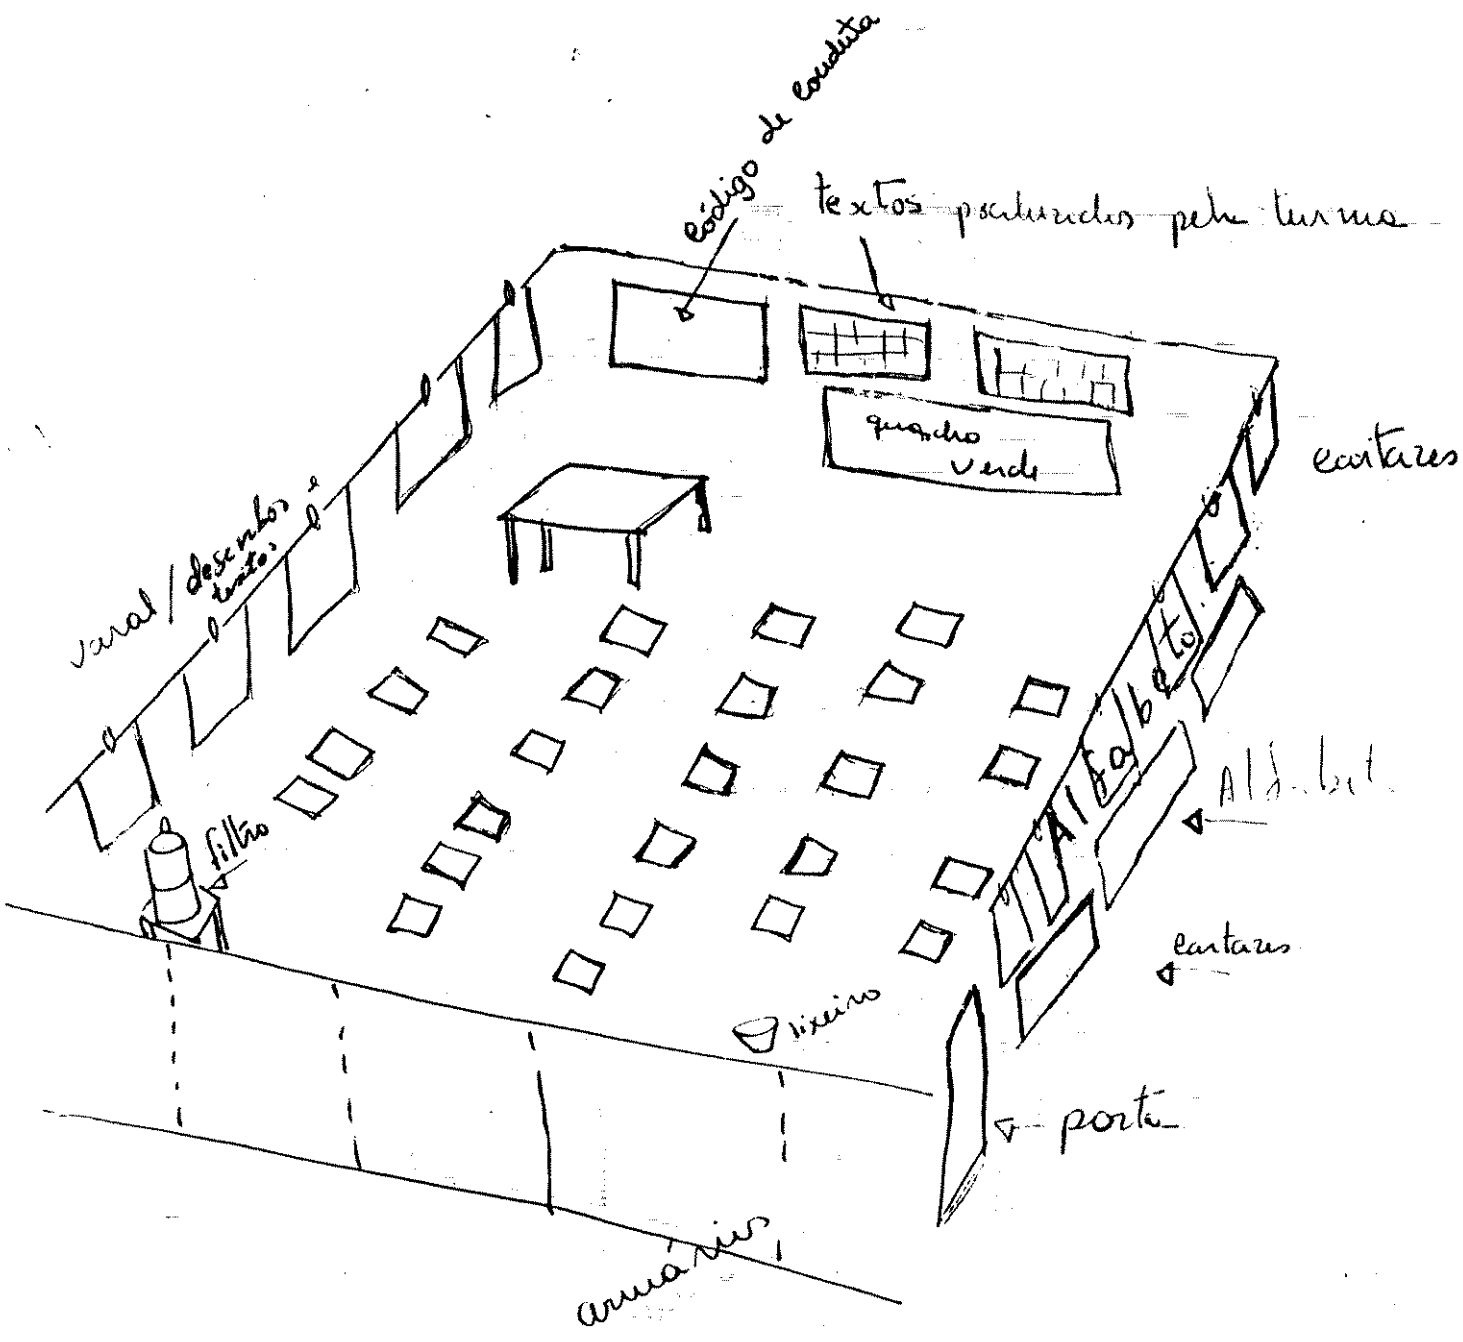 código de conduta
textos produzidos pela turma
quadro
verde
cartazes
varal/desenhos e
textos
Alfabeto
Alfabet
filtro
cartazes
lixeiro
porta
armários